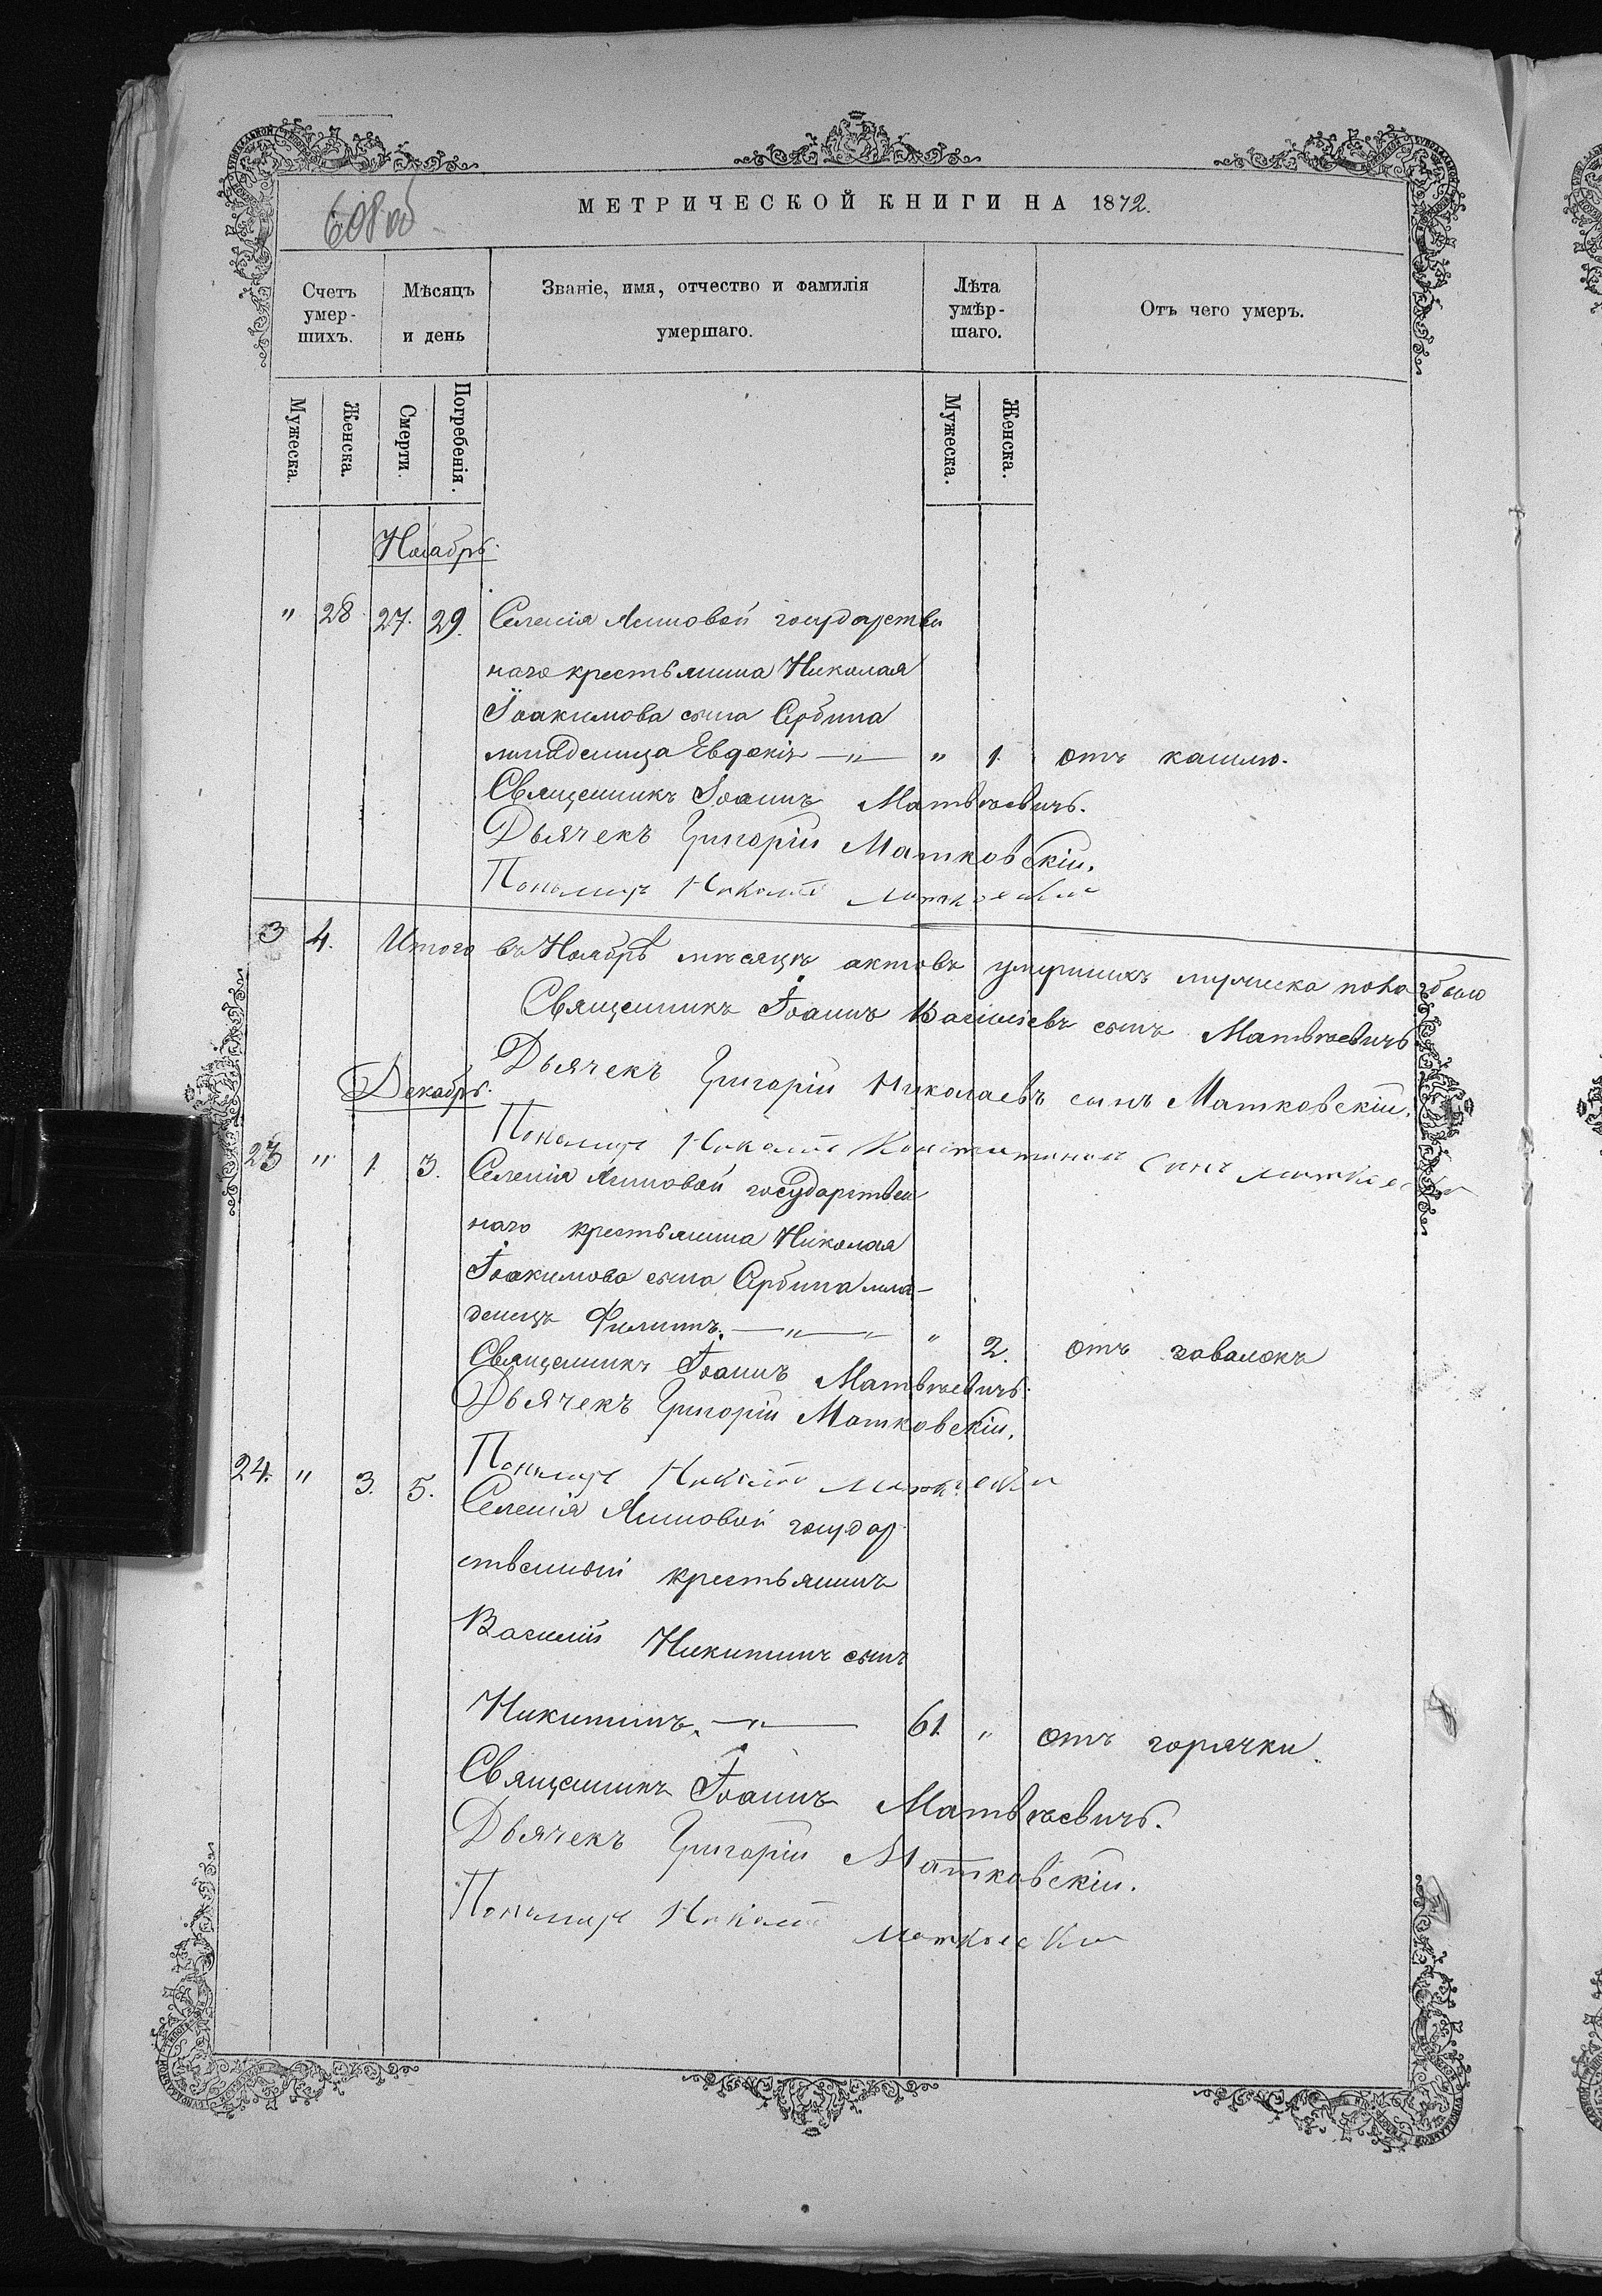 608 об
МЕТРИЧЕСКОЙ КНИГИ НА 1872.
Счетъ умер-шихъ.
Мѣсяцъ и день
Званіе, имя, отчество и фамилія умершаго.
Лѣта умѣр-шаго.
Отъ чего умеръ.
Мужеска. Женска. Смерти. Погребенія. Мужеска. Женска.
Ноябрь.
" 28 27. 29. Селенія Ялповой государствен
наго крестьянина Николая
Іоакимова сына Сербина
младеница Евдокія — " — " 1. отъ кашлю.
Священникъ Іоаннъ Матвѣевичъ.
Дьячекъ Григорій Матковскій.
Пономарь Николай Матковскій
3 4. Итого въ Ноябрѣ мѣсяцѣ актовъ умершихъ мужеска пола было
Священникъ Іоаннъ Василіевъ сынъ Матвѣевичъ
Дьячекъ Григорій Николаевъ сынъ Матковскій.
Декабрь.
Пономарь Николай Константиновъ сынъ Матковскій
23 " 1. 3. Селенія Ялповой государствен
наго крестьянина Николая
Іоакимова сына Сербина мла-
денецъ Филиппъ. — " — " — " 2. отъ завалокъ
Священникъ Іоаннъ Матвѣевичъ.
Дьячекъ Григорій Матковскій.
Пономарь Николай Матковскій
24. " 3. 5. Селенія Ялповой государ
ственный крестьянинъ
Василій Никитинъ сынъ
Никитинъ. — " — 61. " отъ горячки.
Священникъ Іоаннъ Матвѣевичъ.
Дьячекъ Григорій Матковскій.
Пономарь Николай Матковскій